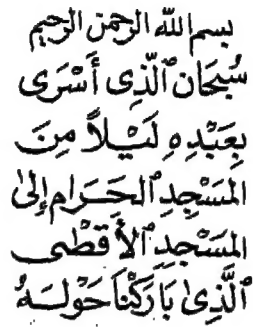 بسم الله الرحمن الرحيم
سُبْحَانَ ٱلَّذِى أَسْرَى
بِعَبْدِهِ لَيْلاً مِنَ
المَسْجِدِ ٱلحَرَامِ إِلَىٰ
المَسْجِدِ ٱلأَقْصَى
ٱلَّذِىٰ بَارَكْنَا حَوْلَهُ